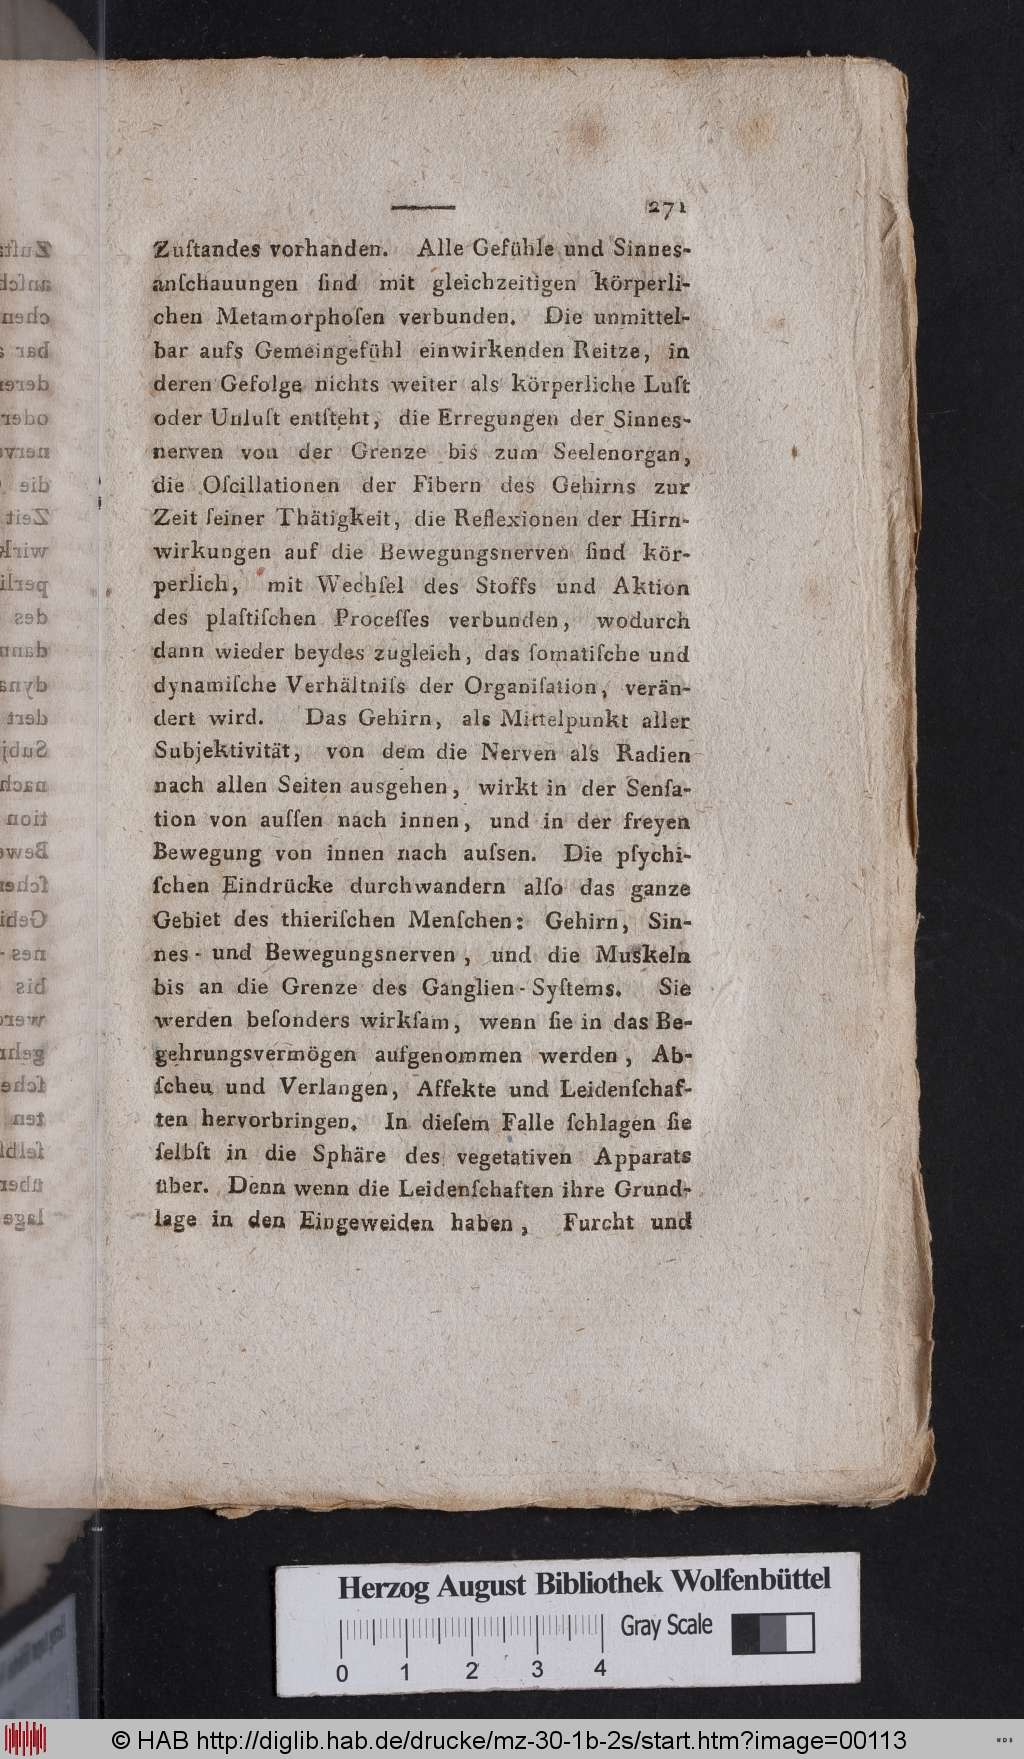 271
Zuſtandes vorhanden. Alle Gefühle und Sinnes-
anſchauungen ſind mit gleichzeitigen körperli-
chen Metamorphoſen verbunden. Die unmittel-
bar aufs Gemeingefühl einwirkenden Reitze, in
deren Gefolge nichts weiter als körperliche Luſt
oder Unluſt entſteht, die Erregungen der Sinnes-
nerven von der Grenze bis zum Seelenorgan,
die Oſcillationen der Fibern des Gehirns zur
Zeit ſeiner Thätigkeit, die Reflexionen der Hirn-
wirkungen auf die Bewegungsnerven ſind kör-
perlich, mit Wechſel des Stoffs und Aktion
des plaſtiſchen Proceſſes verbunden, wodurch
dann wieder beydes zugleich, das ſomatiſche und
dynamiſche Verhältniſs der Organiſation, verän-
dert wird. Das Gehirn, als Mittelpunkt aller
Subjektivität, von dem die Nerven als Radien
nach allen Seiten ausgehen, wirkt in der Senſa-
tion von auſſen nach innen, und in der freyen
Bewegung von innen nach auſsen. Die pſychi-
ſchen Eindrücke durchwandern alſo das ganze
Gebiet des thieriſchen Menſchen: Gehirn, Sin-
nes- und Bewegungsnerven, und die Muskeln
bis an die Grenze des Ganglien-Syſtems. Sie
werden beſonders wirkſam, wenn ſie in das Be-
gehrungsvermögen aufgenommen werden, Ab-
ſcheu und Verlangen, Affekte und Leidenſchaf-
ten hervorbringen. In dieſem Falle ſchlagen ſie
ſelbſt in die Sphäre des vegetativen Apparats
über. Denn wenn die Leidenſchaften ihre Grund-
lage in den Eingeweiden haben, Furcht und
Herzog August Bibliothek Wolfenbüttel
Gray Scale
0 1 2 3 4
© HAB http://diglib.hab.de/drucke/mz-30-1b-2s/start.htm?image=00113